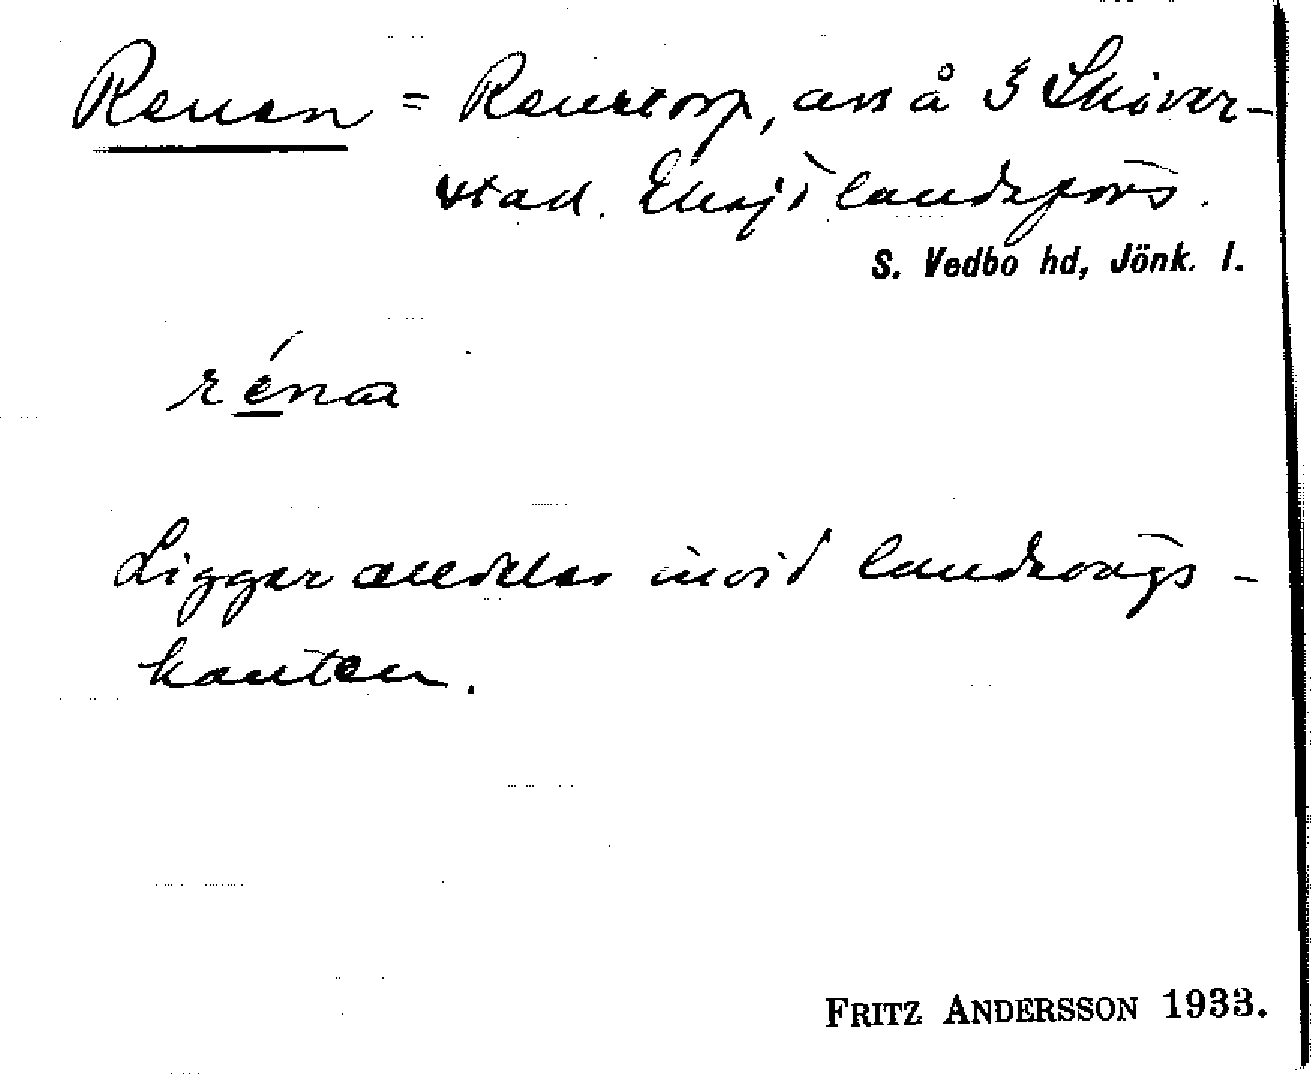 Renen = Renstorp, avs å 3 Skiver-
stad. Eksjö landsförs.
S. Vedbo hd, Jönk. l.
rénar
Ligger alldeles invid landsvägs-
kanten.
FRITZ ANDERSSON 1933.